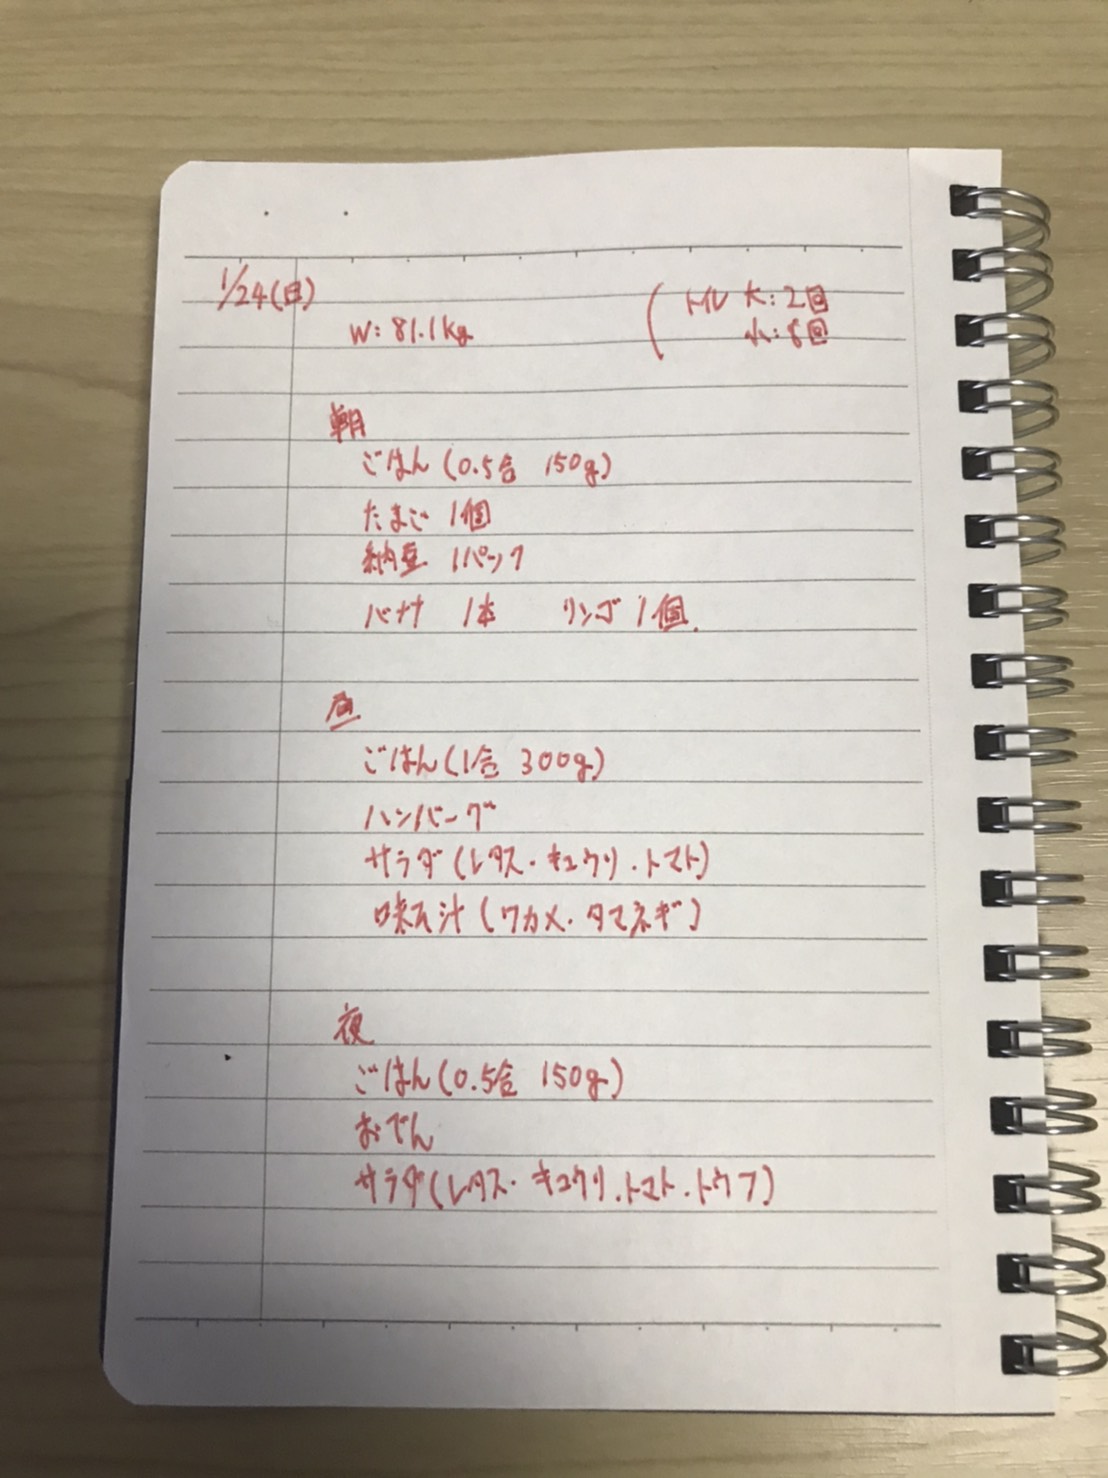 1/24(日)
W: 81.1kg
トイレ 大:2回
小:8回
朝
ごはん(0.5合 150g)
たまご 1個
納豆 1パック
バナナ 1本 リンゴ 1個.
昼
ごはん(1合 300g)
ハンバーグ
サラダ(レタス・キュウリ・トマト)
味そ汁(ワカメ・タマネギ)
夜
ごはん(0.5合 150g)
おでん
サラダ(レタス・キュウリ・トマト・トウフ)